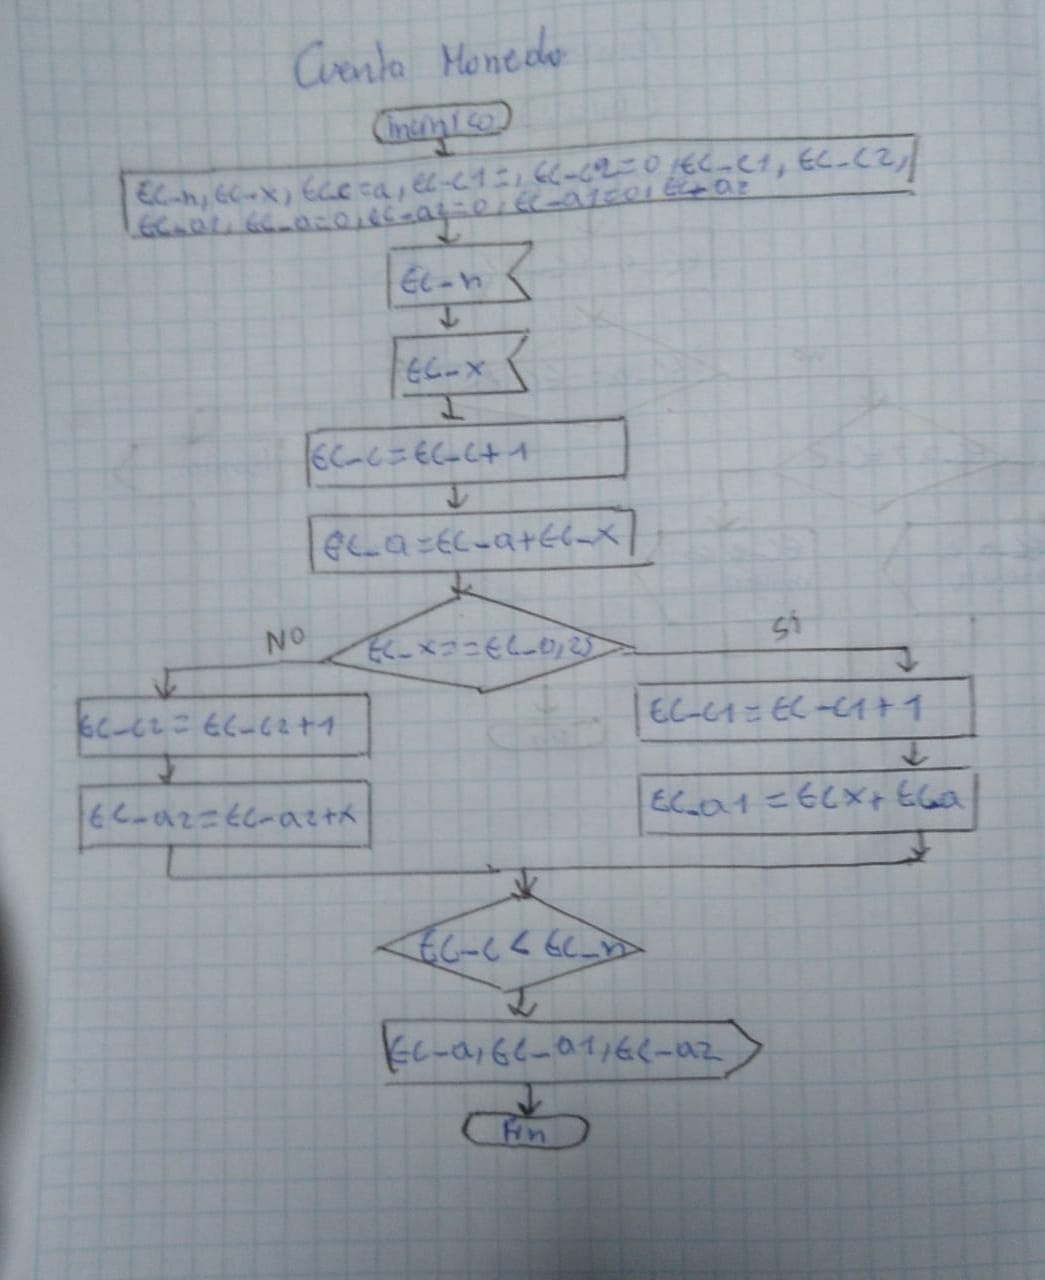 Cuenta Monedo
EC-n, EC-x, ECc=a, EC-C1=, EC-C2=0, EC-C1, EC-C2,
EC-a2, EC-a=0, EC-a2=0, EC-a1=0, EC+a2
EC-n
EC-x
EC-C=EC-C+1
EC-a=EC-a+EC-X
EC-X==EC-0,25
NO
Si
EC-C2=EC-C2+1
EC-C1=EC-C1+1
EC-a2=EC-a2+x
EC-a1=ECX+ECa
EC-C<EC-n
EC-a, EC-a1, EC-a2
Fin